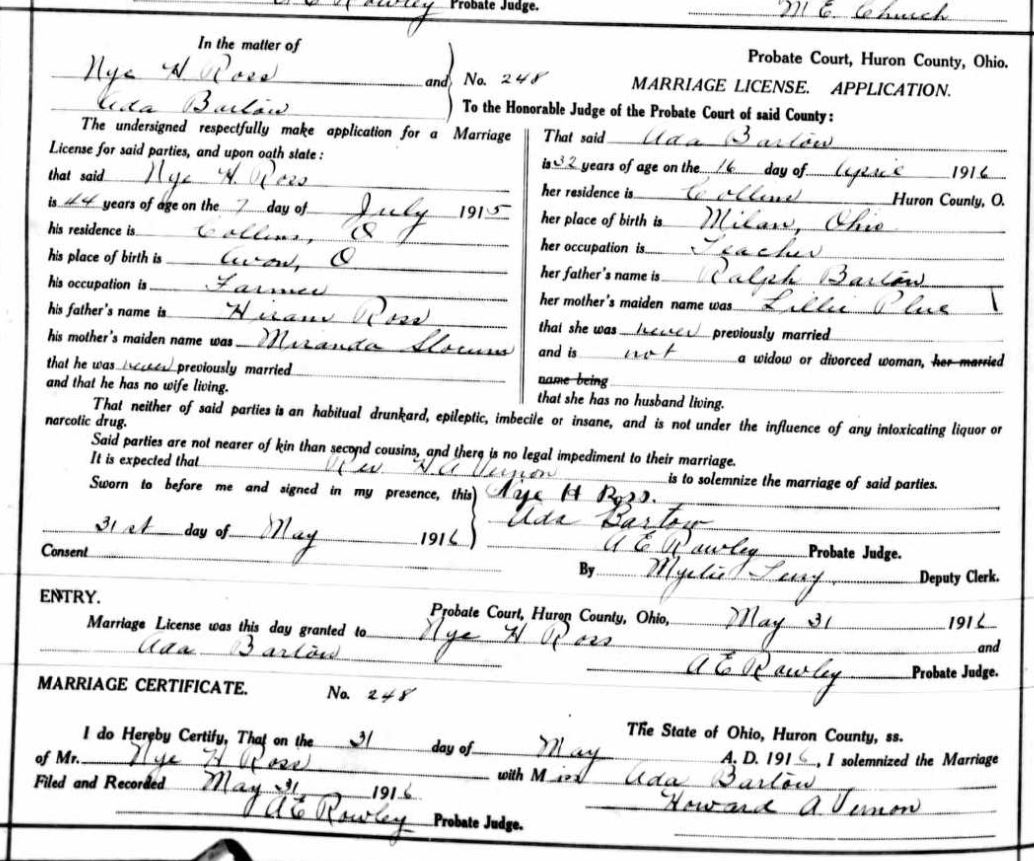 A E Rowley Probate Judge.
M E Church
In the matter of
Nye H. Ross and
Ada Bartow
No. 248
Probate Court, Huron County, Ohio.
MARRIAGE LICENSE. APPLICATION.
To the Honorable Judge of the Probate Court of said County:
The undersigned respectfully make application for a Marriage
License for said parties, and upon oath state:
that said Nye H. Ross
is 44 years of age on the 7 day of July 1915
his residence is Collins, O
his place of birth is Avon, O
his occupation is Farmer
his father's name is Hiram Ross
his mother's maiden name was Miranda Slocum
that he was never previously married
and that he has no wife living.
That said Ada Bartow
is 32 years of age on the 16 day of April 1916
her residence is Collins Huron County, O.
her place of birth is Milan, Ohio
her occupation is Teacher
her father's name is Ralph Bartow
her mother's maiden name was Lillie Plue
that she was never previously married
and is not a widow or divorced woman, her married
name being
that she has no husband living.
That neither of said parties is an habitual drunkard, epileptic, imbecile or insane, and is not under the influence of any intoxicating liquor or
narcotic drug.
Said parties are not nearer of kin than second cousins, and there is no legal impediment to their marriage.
It is expected that Rev H A Vernon is to solemnize the marriage of said parties.
Sworn to before me and signed in my presence, this
31st day of May 1916
Consent
Nye H Ross.
Ada Bartow
A E Rowley Probate Judge.
By Deputy Clerk.
ENTRY.
Probate Court, Huron County, Ohio, May 31 1916
Marriage License was this day granted to Nye H Ross and
Ada Bartow
A E Rowley Probate Judge.
MARRIAGE CERTIFICATE. No. 248
The State of Ohio, Huron County, ss.
I do Hereby Certify, That on the 31 day of May A. D. 1916, I solemnized the Marriage
of Mr. Nye H Ross with Miss Ada Bartow
Filed and Recorded May 31 1916
Howard A Vernon
A E Rowley Probate Judge.